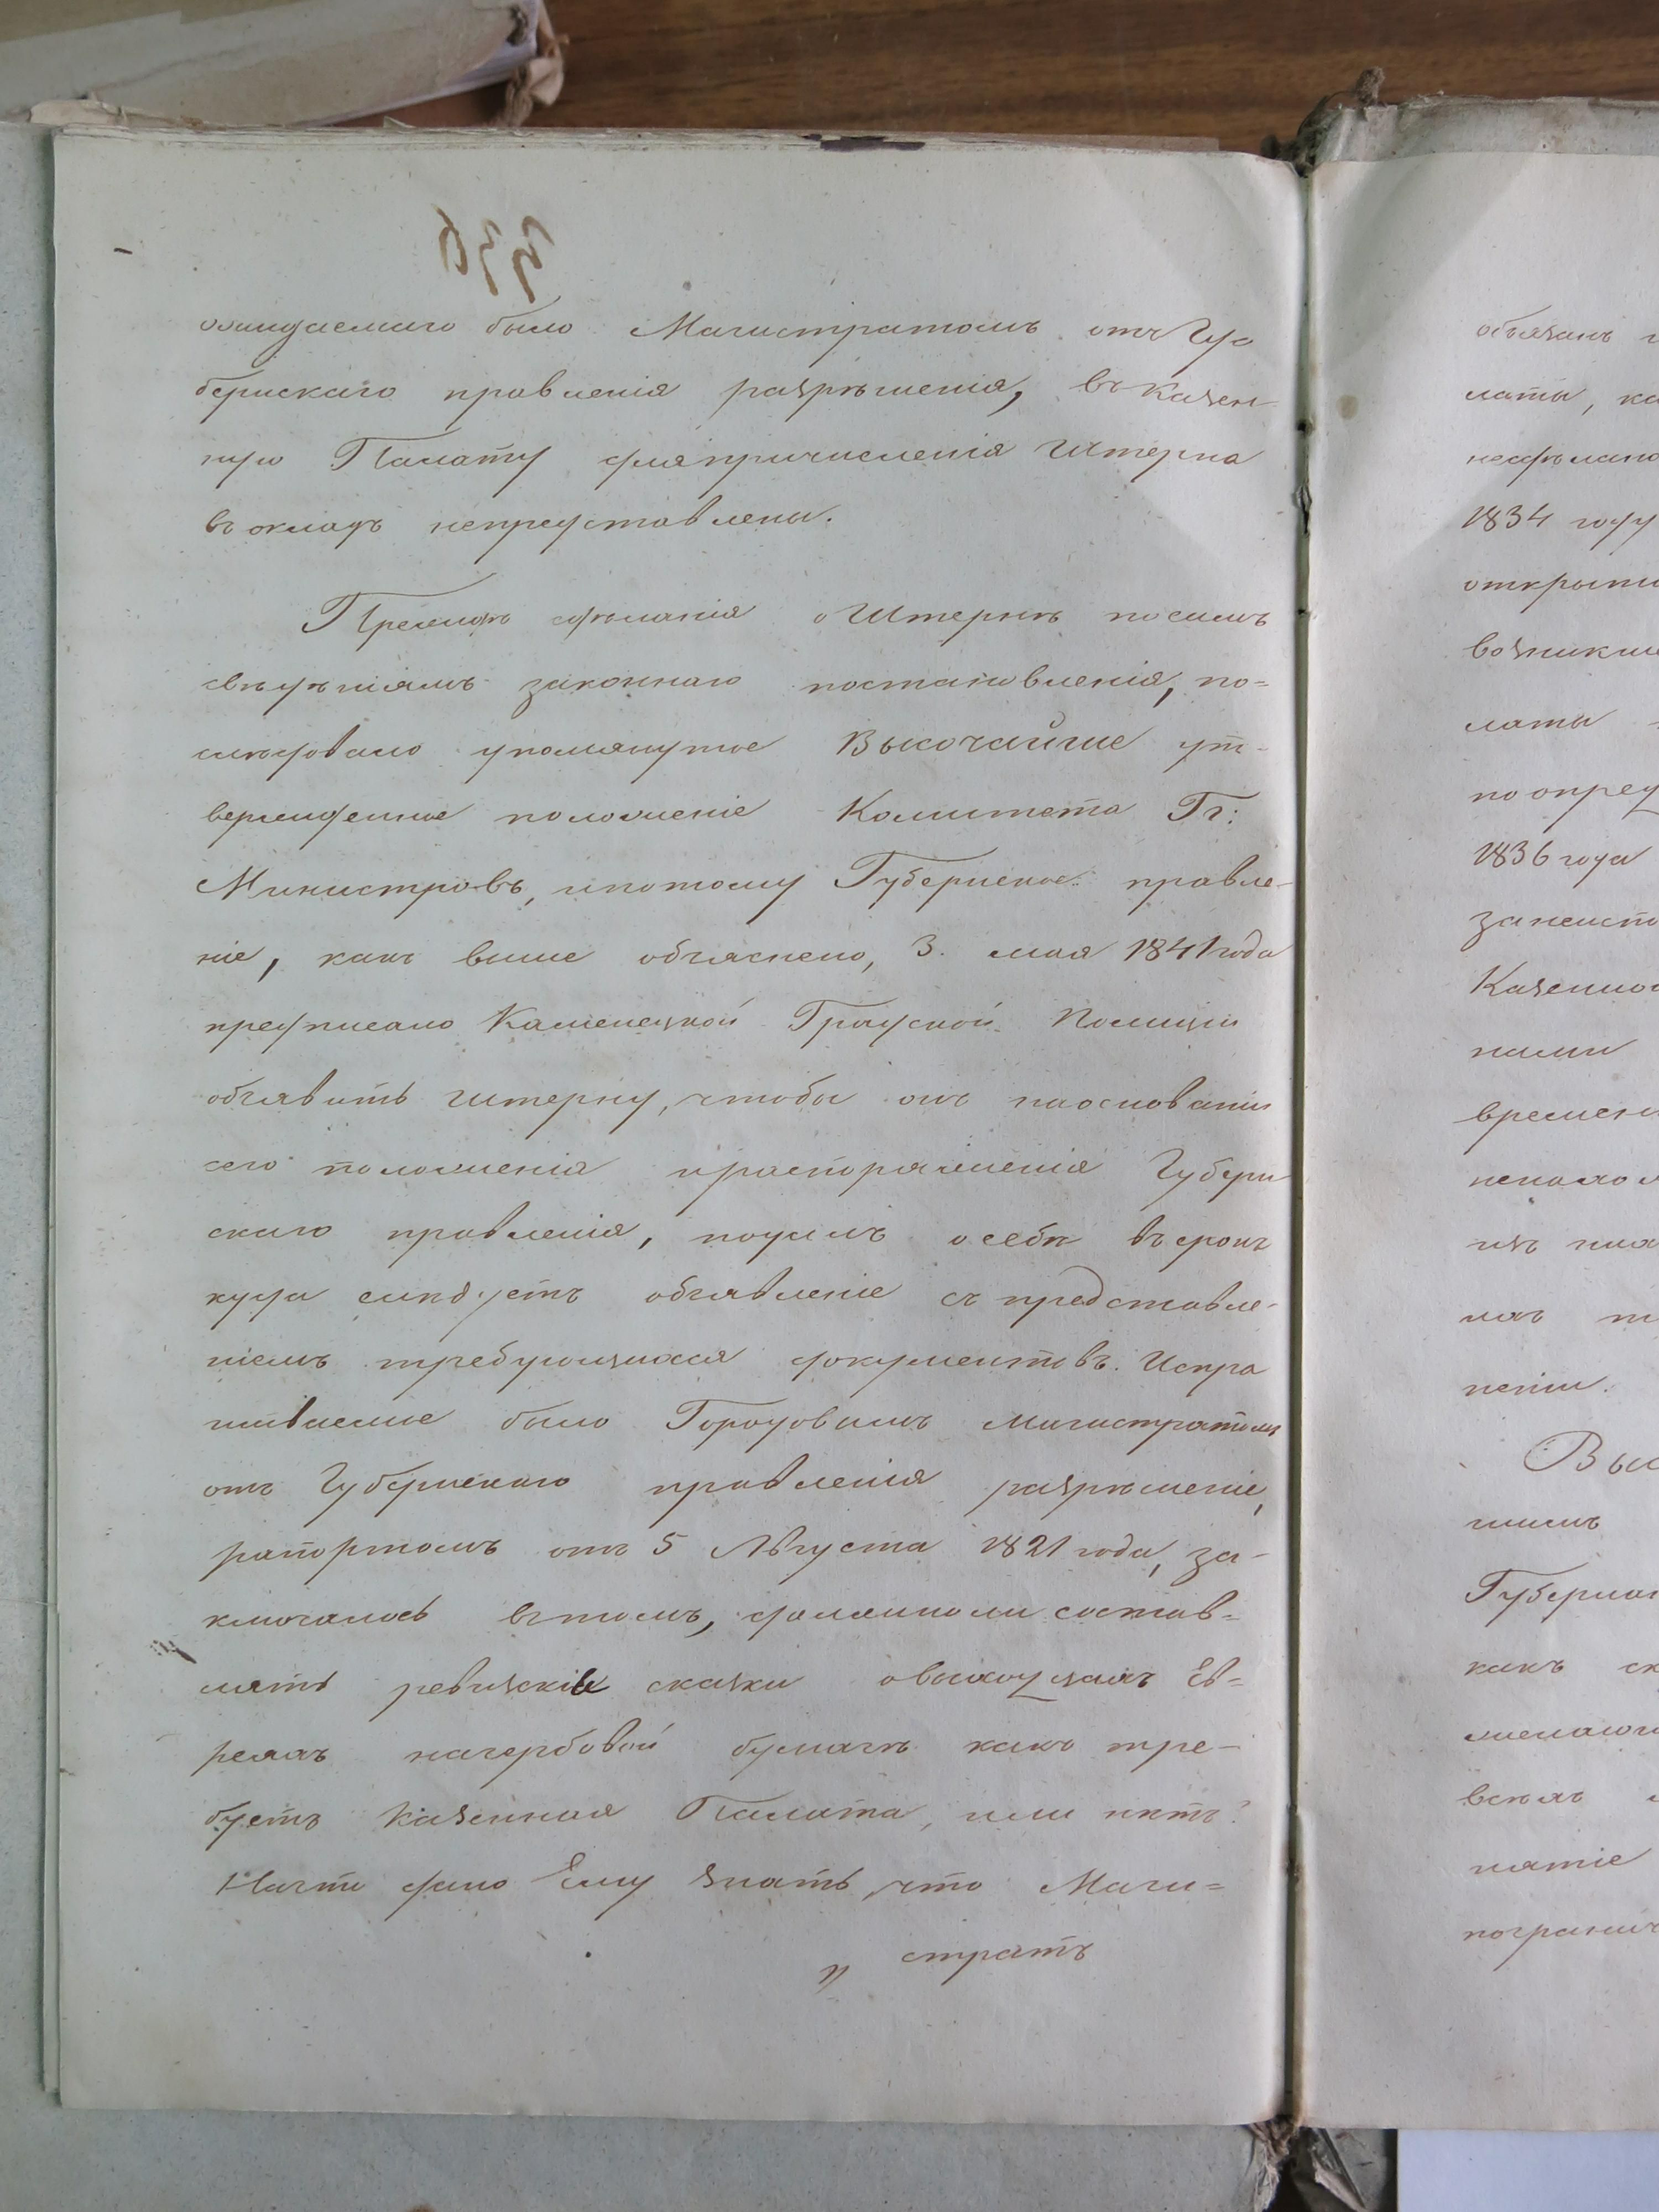 ожидаемаго было Магистратомъ отъ Гу-
бернскаго правленія разрѣшенія, въ Казен-
ную Палату для причисленія Штерна
въ окладъ непредставлены.
Прежде сдѣланія о Штернѣ по симъ
свѣдѣніямъ законнаго постановленія, по=
слѣдовало упомянутое Высочайше ут-
вержденное положеніе Комитета Гг:
Министровъ, и потому Губернское правле-
ніе, какъ выше объяснено, 3. мая 1841 года
предписало Каменецкой Градской Полиціи
объявить Штерну, чтобы онъ на основаніи
сего положенія и распоряженія Губерн
скаго правленія, подалъ о себѣ въ срокъ
куда слѣдуетъ объявленіе съ представле-
ніемъ требующихся документовъ. Испра
шиваемое было Городовымъ Магистратомъ
отъ Губернскаго правленія разрѣшеніе,
рапортомъ отъ 5 Августа 1821 года, за-
ключалось въ томъ, должно ли состав=
лять ревизскіе сказки о выходцахъ Ев=
реяхъ на гербовой бумагѣ какъ тре-
буетъ Казенная Палата, или нѣтъ?
На что дано Ему знать, что Маги=
стратъ
обязанъ
латы, ка
несдѣлано
1834 году
открыти
возникш
латы
по опред
1836 года
за неисто
Казенной
ными
времен
непол
изъ
нихъ
неніи.
Выс
шимъ
Губерна
какъ ск
желаю
всѣхъ
нятіе
погранич